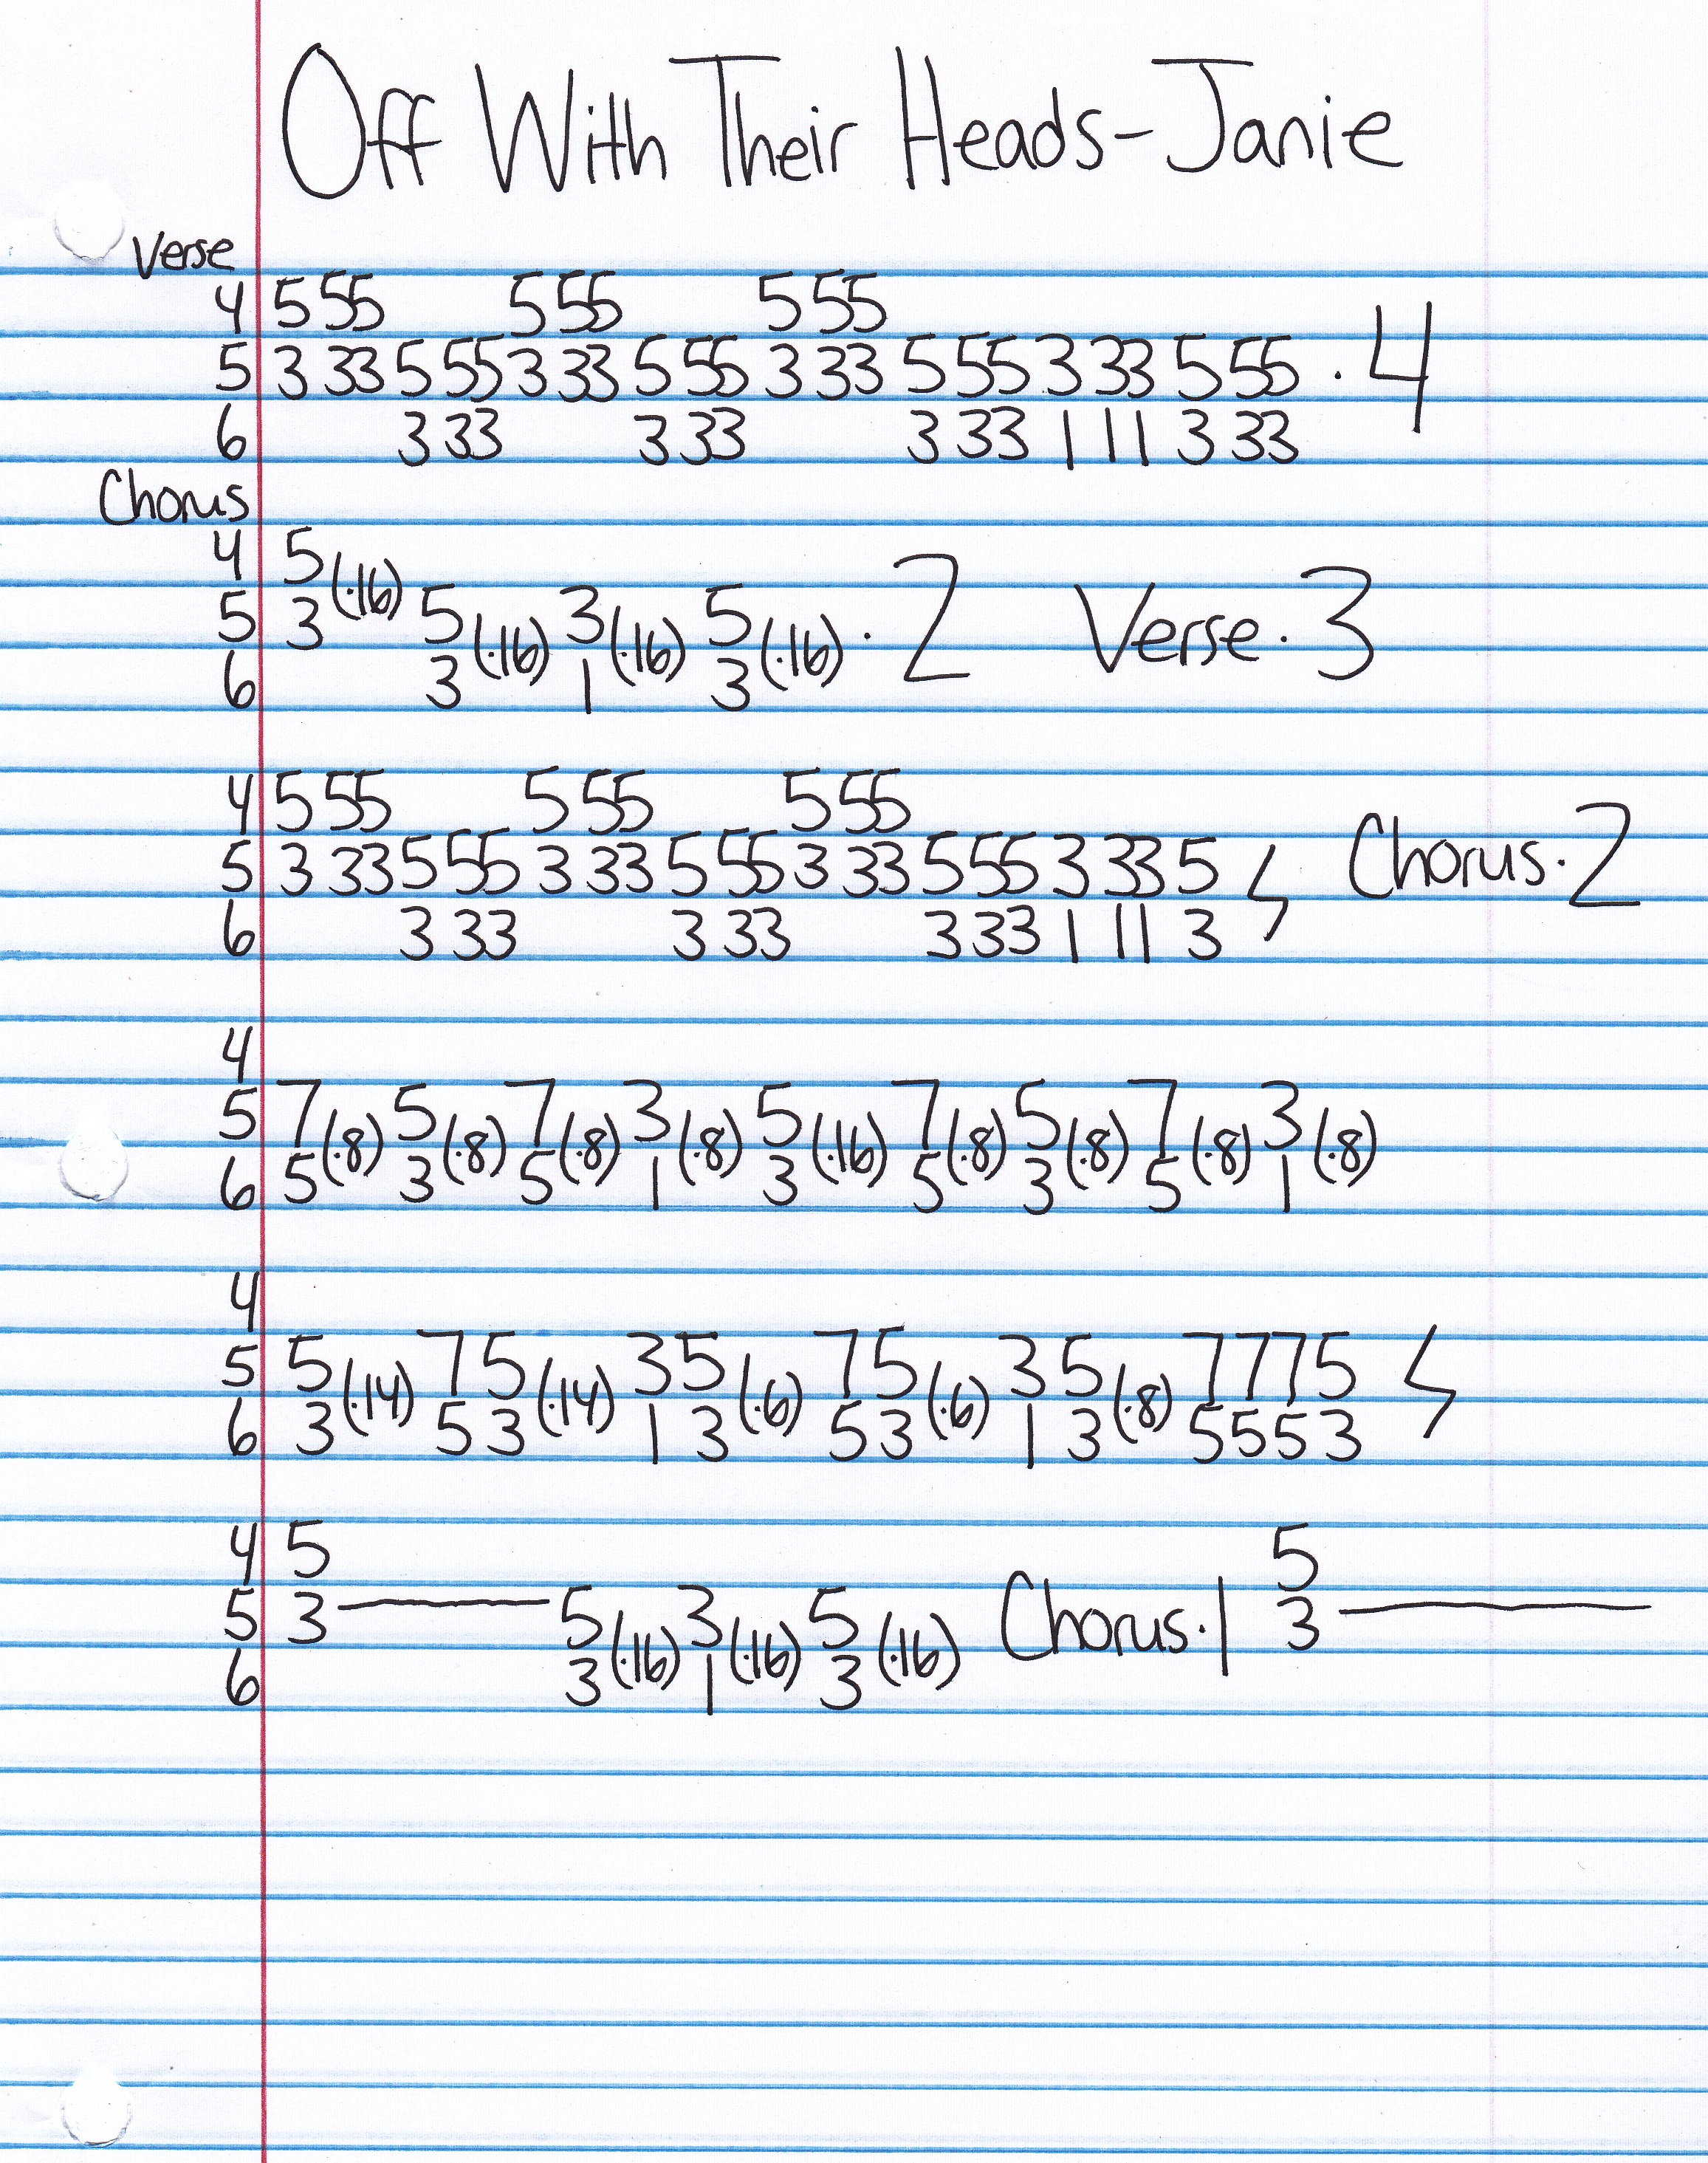 Off With Their Heads-Janie
Verse
4 5 55 5 55 5 55
5 3 33 5 55 3 33 5 55 3 33 5 55 3 33 5 55 · 4
6 3 33 3 33 3 33 1 11 3 33
Chorus
4 5
5 3 (·16) 5 (·16) 3 (·16) 5 (·16) · 2 Verse · 3
6 3 1 3
4 5 55 5 55 5 55
5 3 33 5 55 3 33 5 55 3 33 5 55 3 33 5 Chorus · 2
6 3 33 3 33 3 33 1 11 3
4
5 7 (·8) 5 (·8) 7 (·8) 3 (·8) 5 (·16) 7 (·8) 5 (·8) 7 (·8) 3 (·8)
6 5 3 5 1 3 5 3 5 1
4
5 5 (·14) 7 5 (·14) 3 5 (·6) 7 5 (·6) 3 5 (·8) 7 7 7 5
6 3 5 3 1 3 5 3 1 3 5 5 5 3
4 5 5
5 3 — 5 (·16) 3 (·16) 5 (·16) Chorus · 1 3 —
6 3 1 3